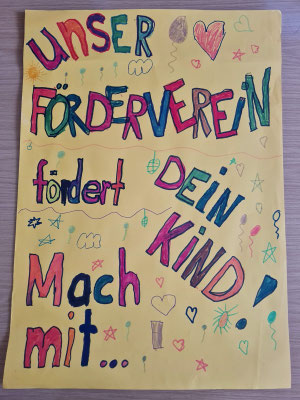 unSER
FÖRDERVEREiN
fördert
DEiN
KiND!
Mach
mit...